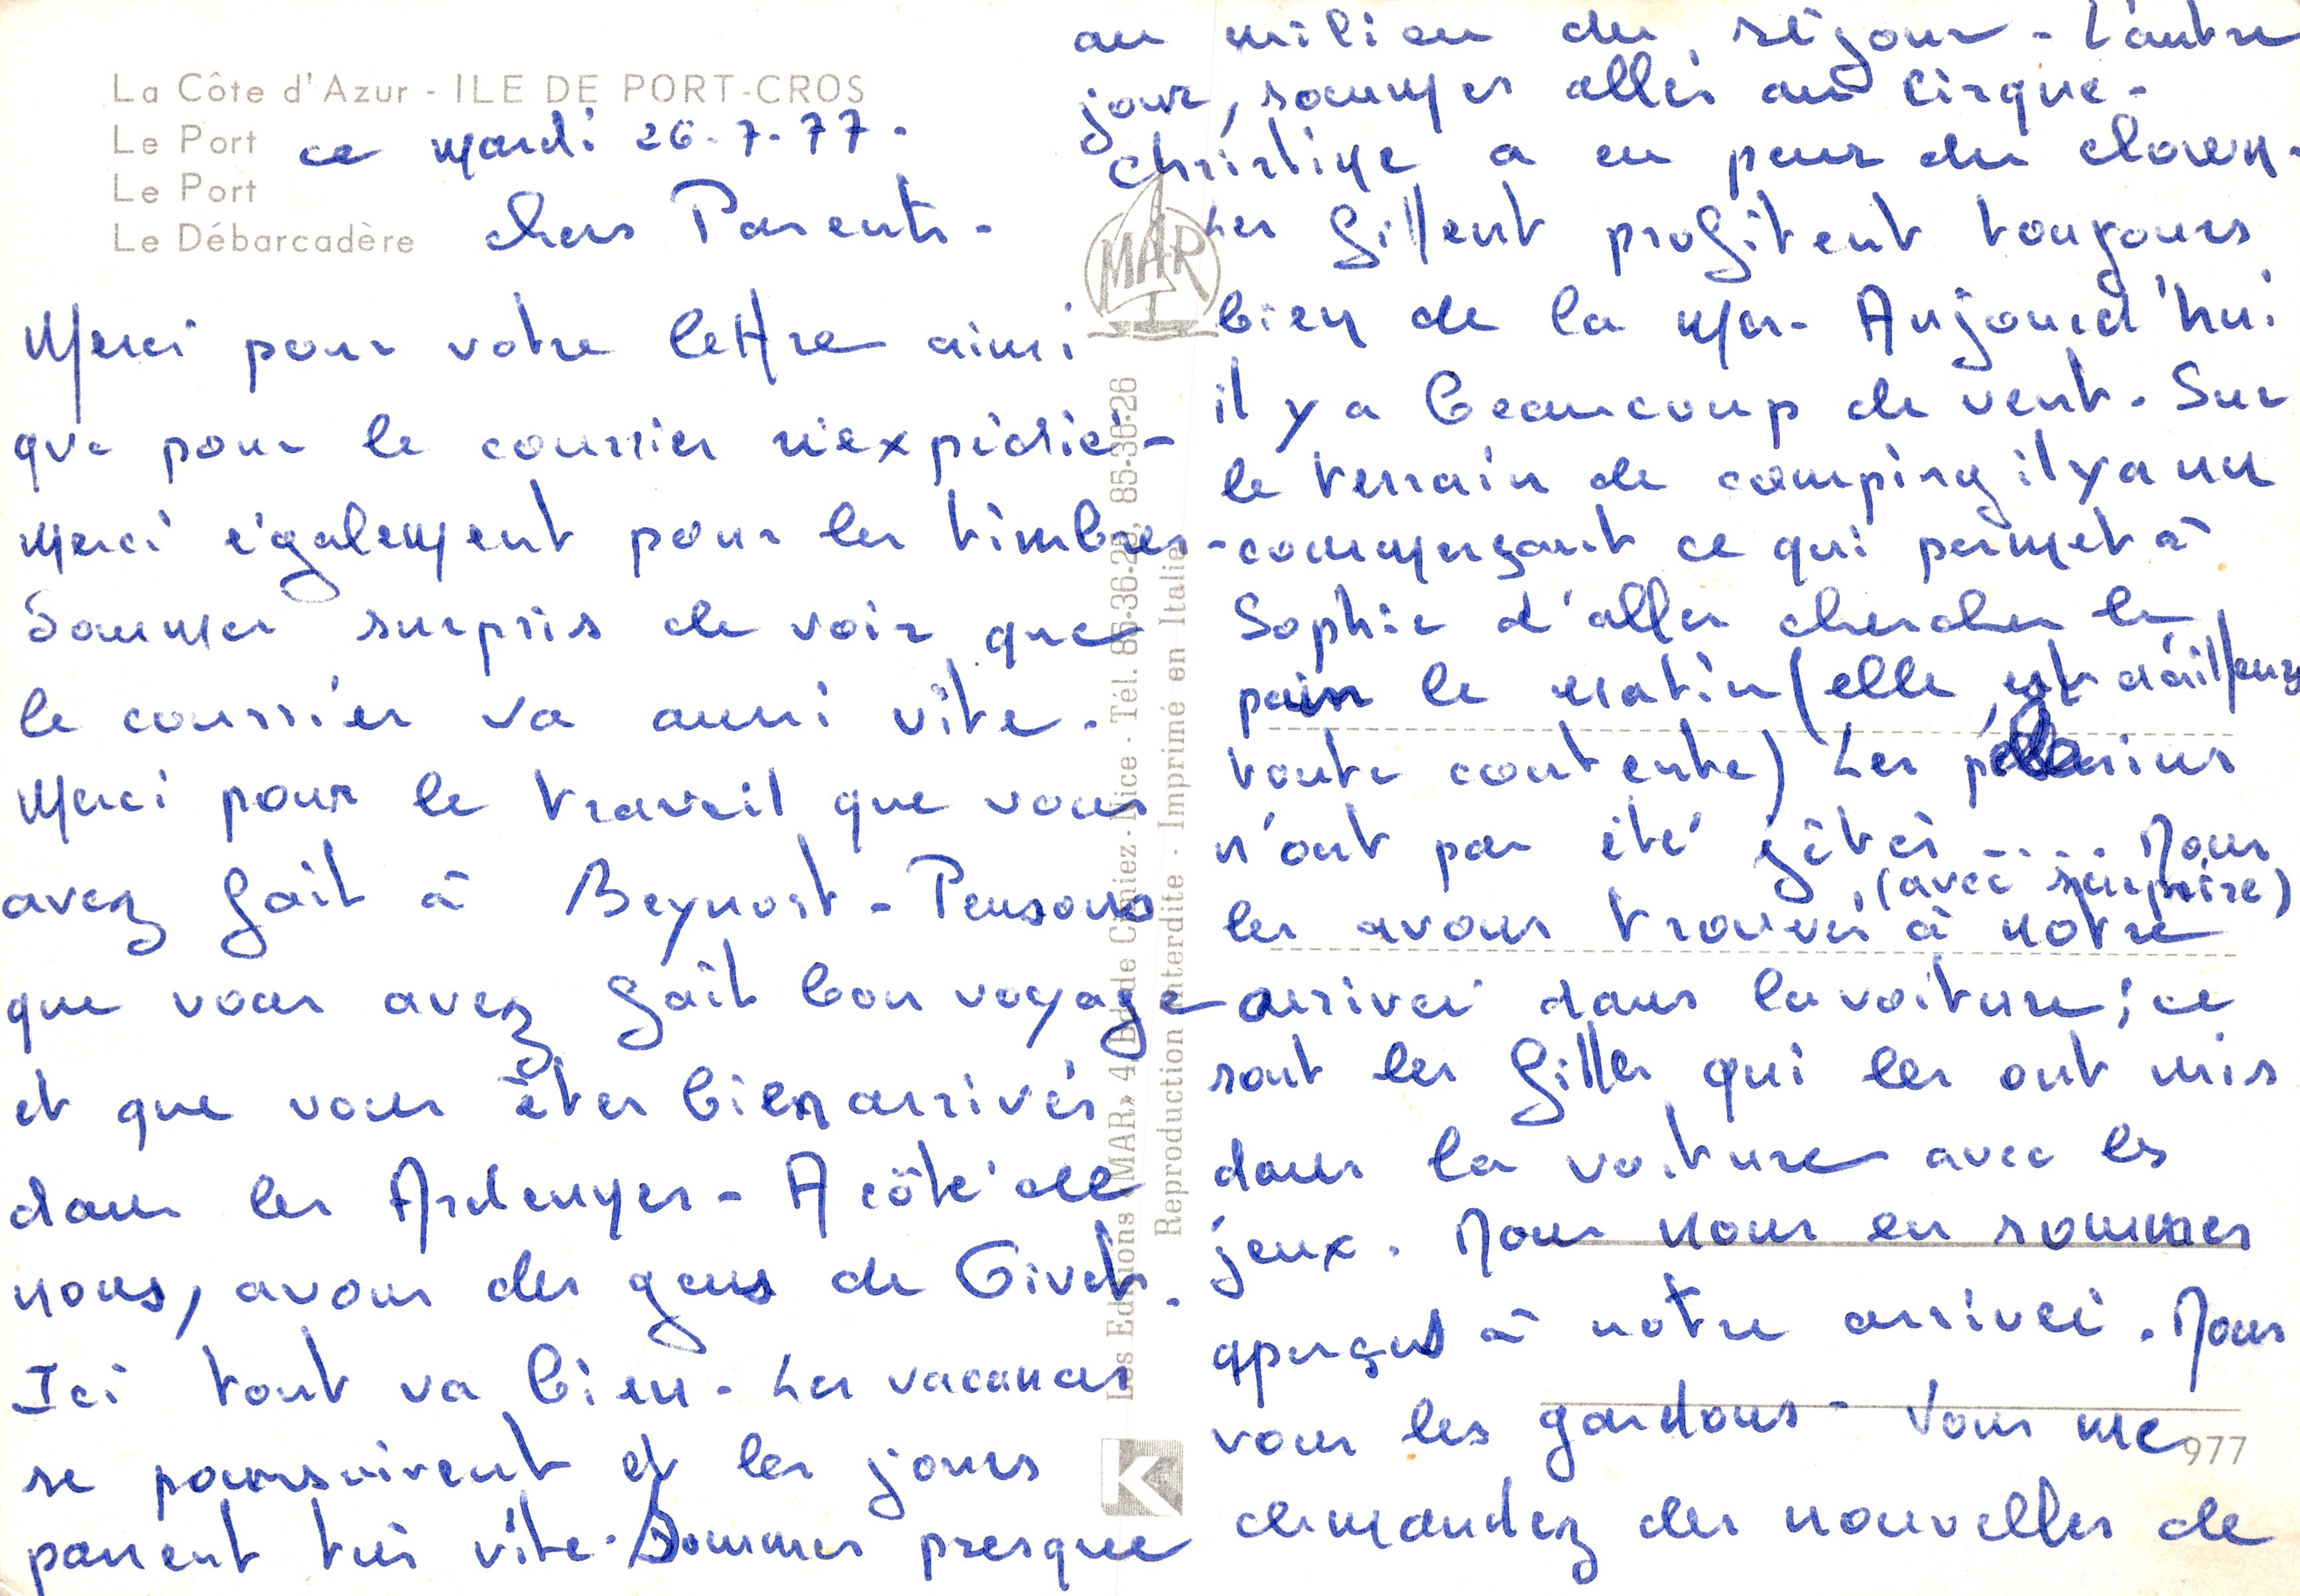 La Côte d'Azur - ILE DE PORT-CROS
Le Port
Le Port
Le Débarcadère
ce mardi 26-7-77.
chers Parents-
Merci pour votre lettre ainsi
que pour le courrier réexpédié-
Merci également pour les timbres-
Sommes surpris de voir que
le courrier va aussi vite.
Merci pour le travail que vous
avez fait à Beynost- Pensons
que vous avez fait bon voyage
et que vous êtes bien arrivés
dans les Ardennes- A côté de
nous, avons des gens de Givet.
Ici tout va bien- Les vacances
se poursuivent et les jours
passent très vite. Sommes presque
au milieu du séjour- L'autre
jour, sommes allés au cirque-
Christine a eu peur du clown-
Les fillent profitent toujours
bien de la mer- Aujourd'hui
il y a beaucoup de vent. Sur
le terrain de camping il y a un
commerçant ce qui permet à
Sophie d'aller chercher le
pain le matin (elle est d'ailleurs
toute contente) Les
n'ont pas été gâtés ..... Nous
les avons trouvés (avec surprise) à notre
arrivée dans la voiture; ce
sont les filles qui les ont mis
dans la voiture avec les
jeux. Nous nous en sommes
aperçus à notre arrivée. Nous
vous les gardons- Vous me
demandez des nouvelles de
MAR
Les Editions «MAR» 4, Bd de Cimiez - Nice - Tél. 85-36-26
Reproduction interdite - Imprimé en Italie
K
977